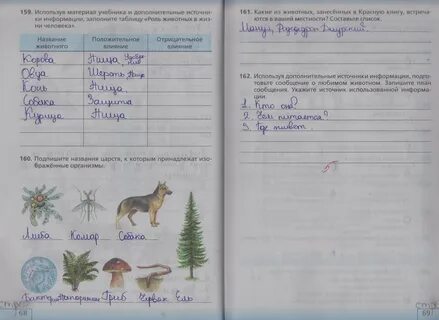 159. Используя материал учебника и дополнительные источни-
ки информации, заполните таблицу «Роль животных в жиз-
ни человека».
Название животного Положительное влияние Отрицательное влияние
Корова Пища,
Овца Шерсть, пища
Конь Пища
Собака Защита
Курица Пища
160. Подпишите названия царств, к которым принадлежат изо-
бражённые организмы.
Амёба Комар Собака
Бактерия Папоротник Гриб Червяк Ель
68
161. Какие из животных, занесённых в Красную книгу, встреча-
ются в вашей местности? Составьте список.
Манул,
162. Используя дополнительные источники информации, подго-
товьте сообщение о любимом животном. Запишите план
сообщения. Укажите источник использованной информа-
ции.
1. Кто он?
2. Чем питается?
3. Где живёт.
69